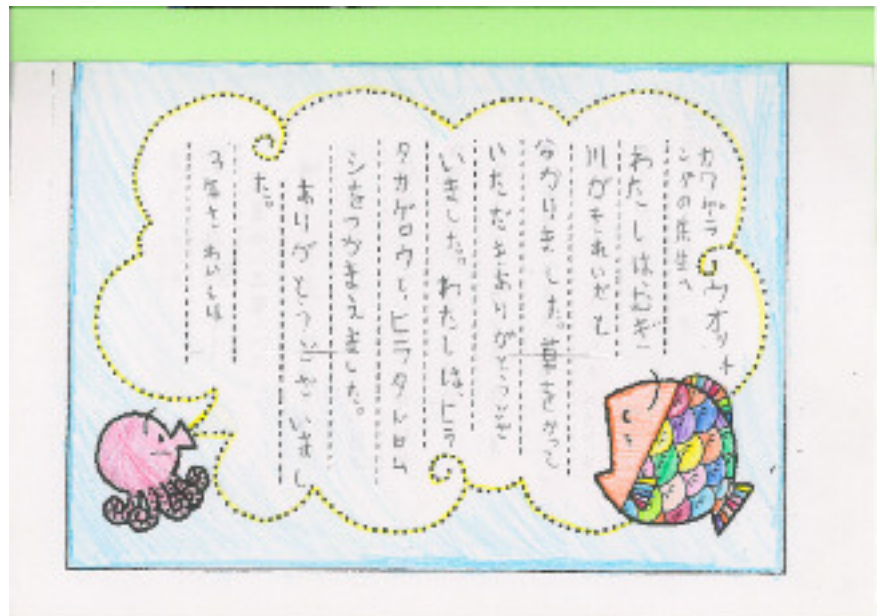 カワゲラウオッチ
ングの先生へ
わたしは
川がきれいだと
分かりました。草をかって
いただきありがとうござ
いました。わたしは、ヒラ
タカゲロウと、ヒラタドロム
シをつかまえました。
ありがとうございまし
た。